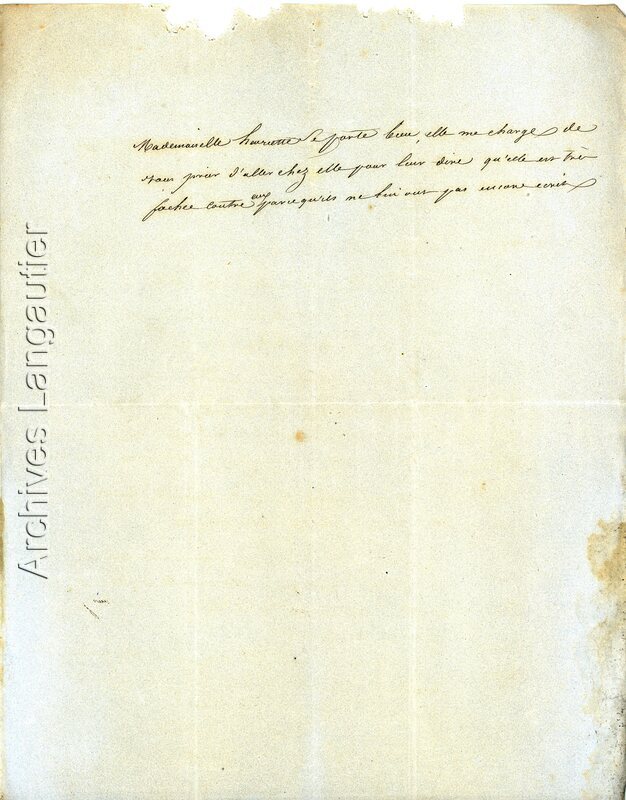 Mademoiselle henriette se porte bien, elle me charge de
vous prier d'aller chez elle pour leur dire qu'elle est très
fachée contre eux parcequ'ils ne lui ont pas encore ecrit
Archives Langautier